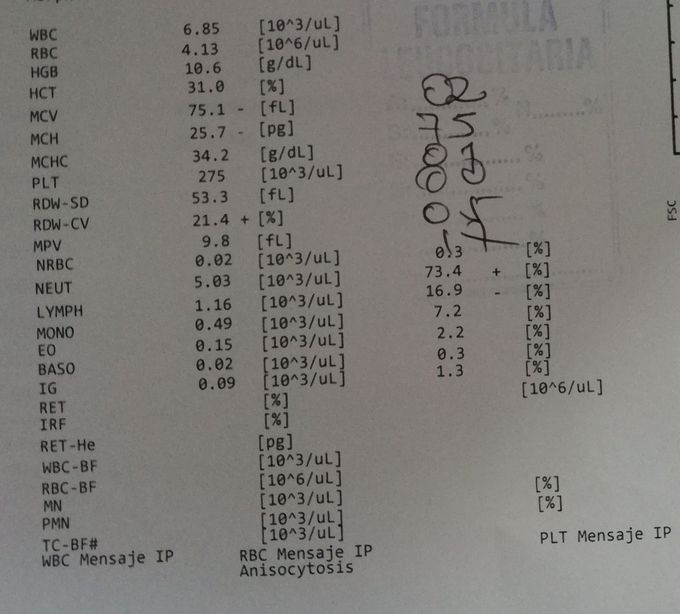 FORMULA
WBC 6.85 [10^3/uL]
RBC 4.13 [10^6/uL]
HGB 10.6 [g/dL]
HCT 31.0 [%]
MCV 75.1 - [fL]
MCH 25.7 - [pg]
MCHC 34.2 [g/dL]
PLT 275 [10^3/uL]
RDW-SD 53.3 [fL]
RDW-CV 21.4 + [%]
MPV 9.8 [fL]
NRBC 0.02 [10^3/uL] 0.3 [%]
NEUT 5.03 [10^3/uL] 73.4 + [%]
LYMPH 1.16 [10^3/uL] 16.9 - [%]
MONO 0.49 [10^3/uL] 7.2 [%]
EO 0.15 [10^3/uL] 2.2 [%]
BASO 0.02 [10^3/uL] 0.3 [%]
IG 0.09 [10^3/uL] 1.3 [%]
RET [%] [10^6/uL]
IRF [%]
RET-He [pg]
WBC-BF [10^3/uL]
RBC-BF [10^6/uL]
MN [10^3/uL] [%]
PMN [10^3/uL] [%]
TC-BF# [10^3/uL]
WBC Mensaje IP RBC Mensaje IP PLT Mensaje IP
Anisocytosis
02
75
FSC